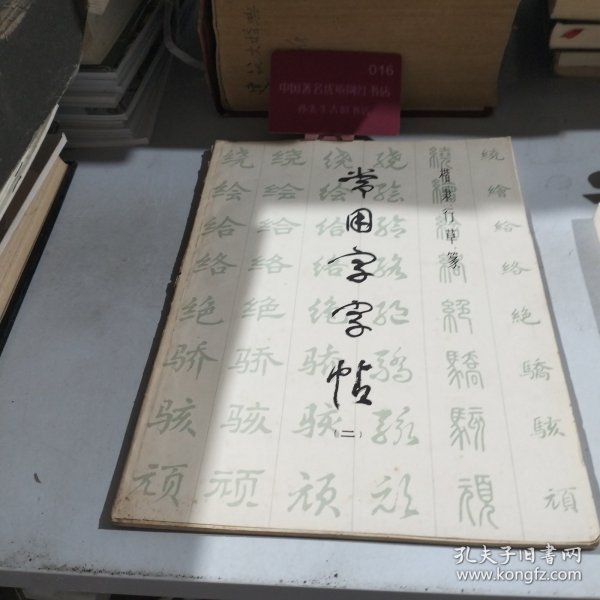 016
中国著名优质网红书店
常用字字帖
(二)
楷隶行草篆
绕 绕 绕 绕 繞 繞
绘 绘 绘 绘 繪 繪
给 给 给 给 給 給
络 络 络 络 絡 絡
绝 绝 绝 绝 絕 絕
骄 骄 骄 骄 驕 驕
骇 骇 骇 骇 駭 駭
顽 顽 顽 顽 頑 頑
孔夫子旧书网
www.kongfz.com